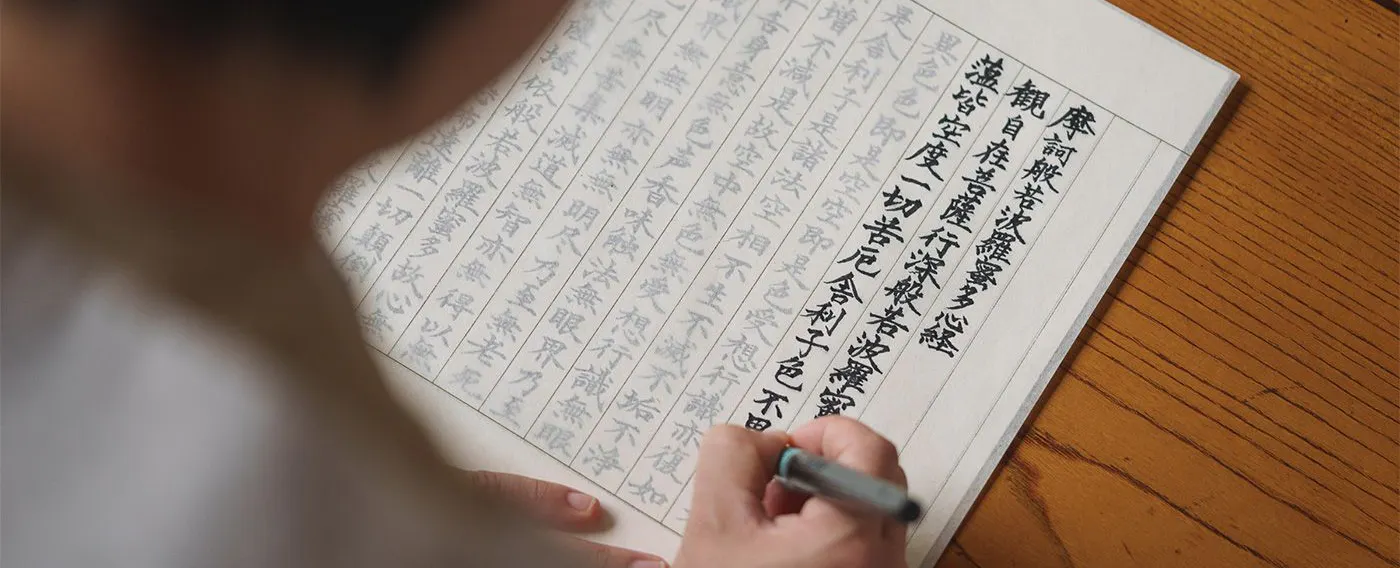 摩訶般若波羅蜜多心経
観自在菩薩行深般若波羅蜜
蘊皆空度一切苦厄舎利子色不異
異色色即是空空即是色受想行識亦復如
是舎利子是諸法空相不生不滅不垢不浄
増不減是故空中無色無受想行識無眼
舌身意無色声香味触法無眼界乃至
界無無明亦無無明尽乃至無老死
尽無苦集滅道無智亦無得以無
依般若波羅蜜多故心無
遠離一切顛倒